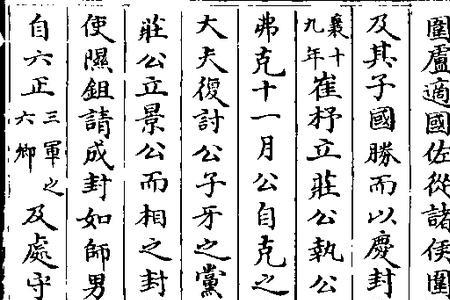 圍盧適國佐從諸侯圍
及其子國勝而以慶封
襄十九年崔杼立莊公執公
弗克十一月公自克之
大夫復討公子牙之黨
莊公立景公而相之封
使隰鉏請成封如師男
自六正三軍之六卿及處守